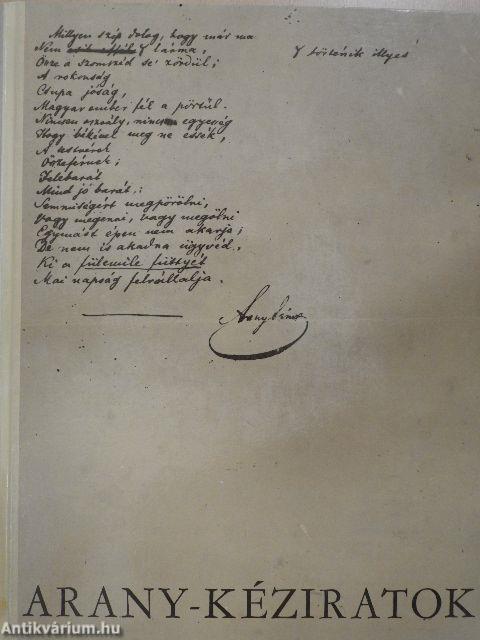 Millyen szép dolog, hogy már ma
Nem lárma, történik illyes
Össze a szomszéd se' zördül;
A rokonság
Csupa jóság,
Magyar ember fél a pörtül.
Nincsen osztály, nincsen egyesség
Hogy békével meg ne essék,
A testvérek
Összeférnek;
Felebarát
Mind jó barát:
Semmiségért megpörölni,
Vagy megenni, vagy megölni
Egymást épen nem akarja;
De nem is akadna ügyvéd,
Ki a fülemile füttyét
Mai napság felvállalja.
Arany János
ARANY-KÉZIRATOK
Antikvárium.hu